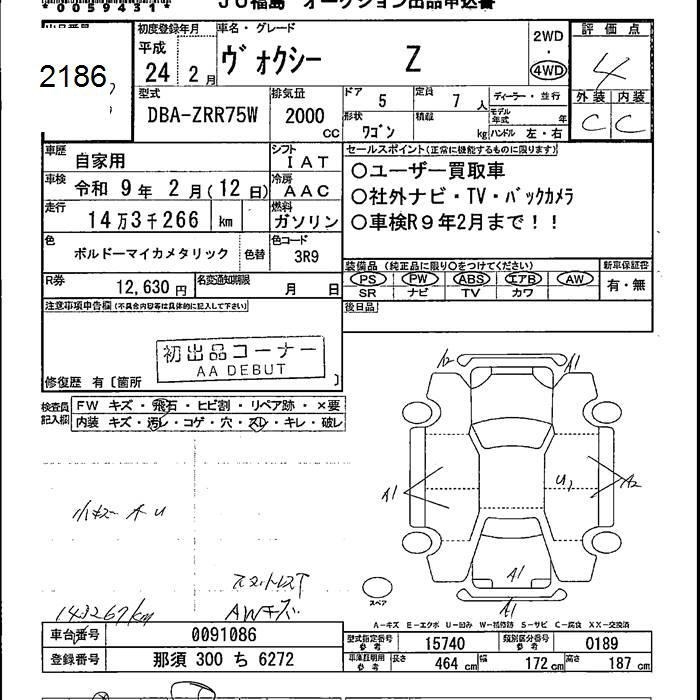 *00594311*
JU福島 オークション出品申込書
出品番号
2186
初度登録年月
平成
24年 2月
車名・グレード
ヴォクシー Z
2WD
・
4WD
評価点
4
外装 内装
C C
型式
DBA-ZRR75W
排気量
2000
cc
ドア
5
定員
7 人
形状
ワゴン
積載
kg
ディーラー・並行
モデル年式 年
ハンドル 左・右
車歴
自家用
シフト
IAT
車検
令和 9年 2月(12日)
冷房
AAC
走行
14万3千266 km
燃料
ガソリン
色
ボルドーマイカメタリック
色替
色コード
3R9
R券
12,630円
名変通知期限
月 日
セールスポイント(正常に機能するものに限ります)
○ユーザー買取車
○社外ナビ・TV・バックカメラ
○車検R9年2月まで!!
装備品(純正品に限り○をつけてください)
新車保証書
PS PW ABS エアB AW
SR ナビ TV カワ
有・無
後日品
注意事項申告欄(不具合内容等は具体的に記入して下さい)
初出品コーナー
AA DEBUT
修復歴 有〔箇所 〕
検査員記入欄
FW キズ・飛石・ヒビ割・リペア跡・×要
内装 キズ・汚レ・コゲ・穴・スレ・キレ・破レ
小キズ A U
143267km
AWキズ
A2 A1
A1
U1
A2
A1
A1
スペア
A-キズ E-エクボ U-凹み W-補修跡 S-サビ C-腐食 XX-交換済
車台番号
0091086
登録番号
那須 300 ち 6272
型式指定番号
参考
15740
類別区分番号
参考
0189
車庫証明用
参考
長さ 464 cm
幅 172 cm
高さ 187 cm